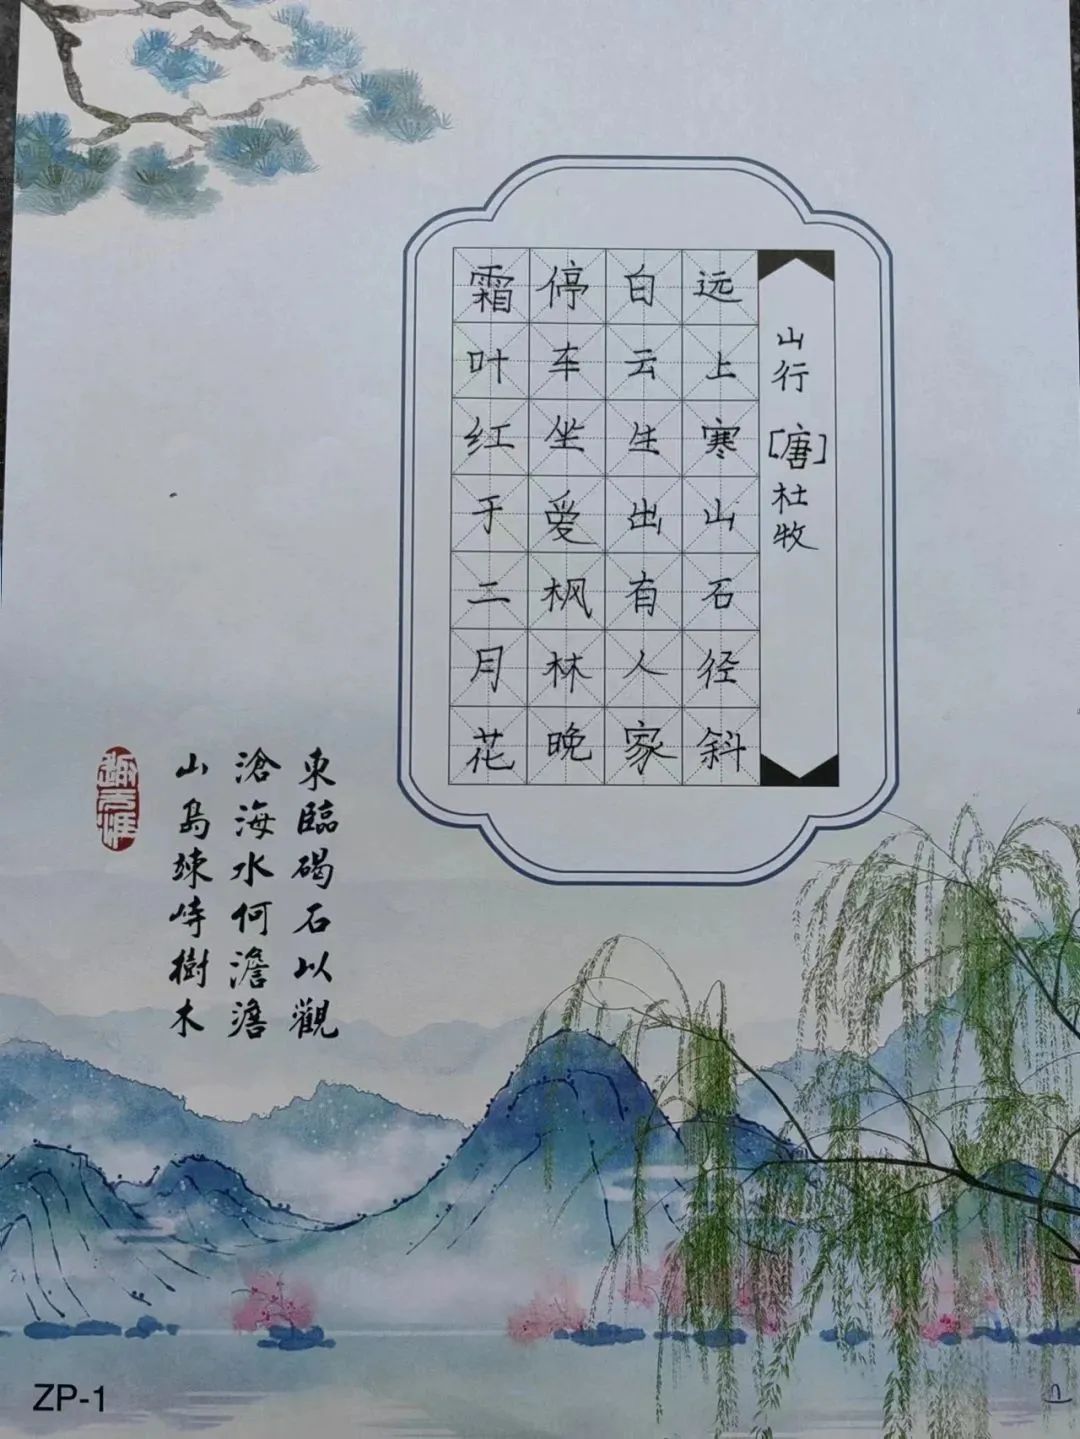 山行[唐]杜牧
远上寒山石径斜
白云生出有人家
停车坐爱枫林晚
霜叶红于二月花
東臨碣石以觀
滄海水何澹澹
山島竦峙樹木
ZP-1